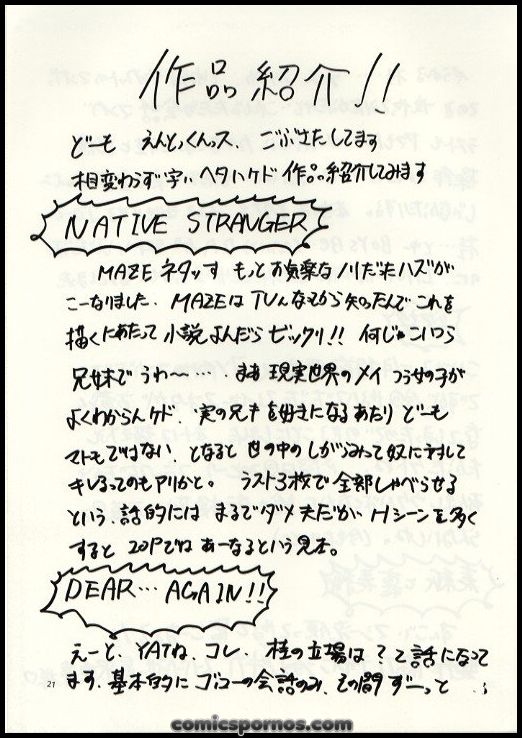 作品紹介!!
どーも えんどくんス ごぶさたしてます
相変わらず字ハヘタハケド作品紹介してみます
NATIVE STRANGER
MAZEネタッす もっとお気楽なノリだたハズが
こーなりました. MAZEはTVんなで知ったんで これを
描くにあたって小説よんだらビックリ!! 何じゃこいつら
兄妹で うわ〜…. まあ 現実世界のメイっつう女の子が
よくわからんケド 実の兄キを好きになるあたり どーも
マトモではない、となると世の中のしがらみって奴に対して
キレるってのもアリかと。 ラスト3枚で全部しゃべらせる
という、話的には まるでダメ夫だが、Hシーンを多く
すると 20Pでは あーなるという見本。
DEAR… AGAIN!!
えーと、YATね、コレ. 桂の立場は?って話になって
ます. 基本的にゴコーの会話のみ、その間ずーっと
21
comicspornos.com